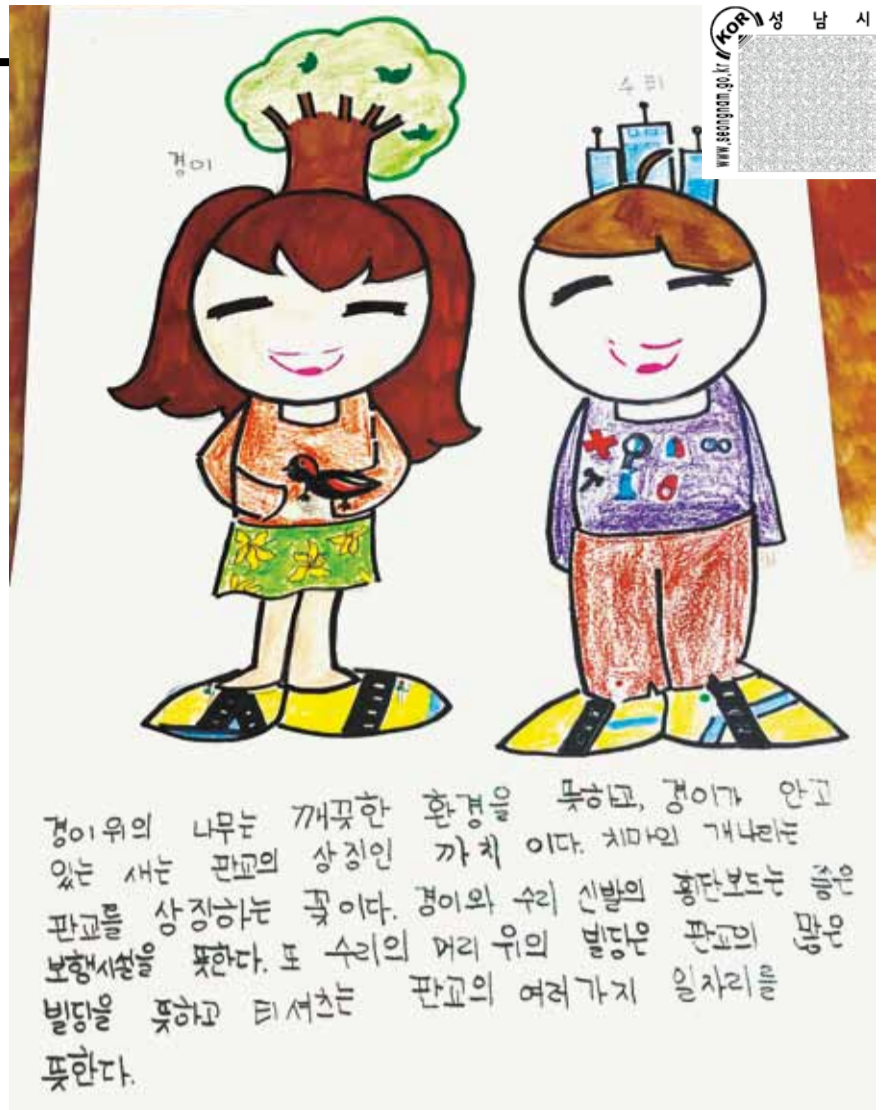 KOR 성 남 시
www.seongnam.go.kr
수리
경이
경이위의 나무는 깨끗한 환경을 뜻하고, 경이가 안고
있는 새는 판교의 상징인 까치 이다. 치마의 개나리는
판교를 상징하는 꽃이다. 경이와 수리 신발의 횡단보도는 좋은
보행시설을 뜻한다. 또 수리의 머리 위의 빌딩은 판교의 많은
빌딩을 뜻하고 티셔츠는 판교의 여러가지 일자리를
뜻한다.